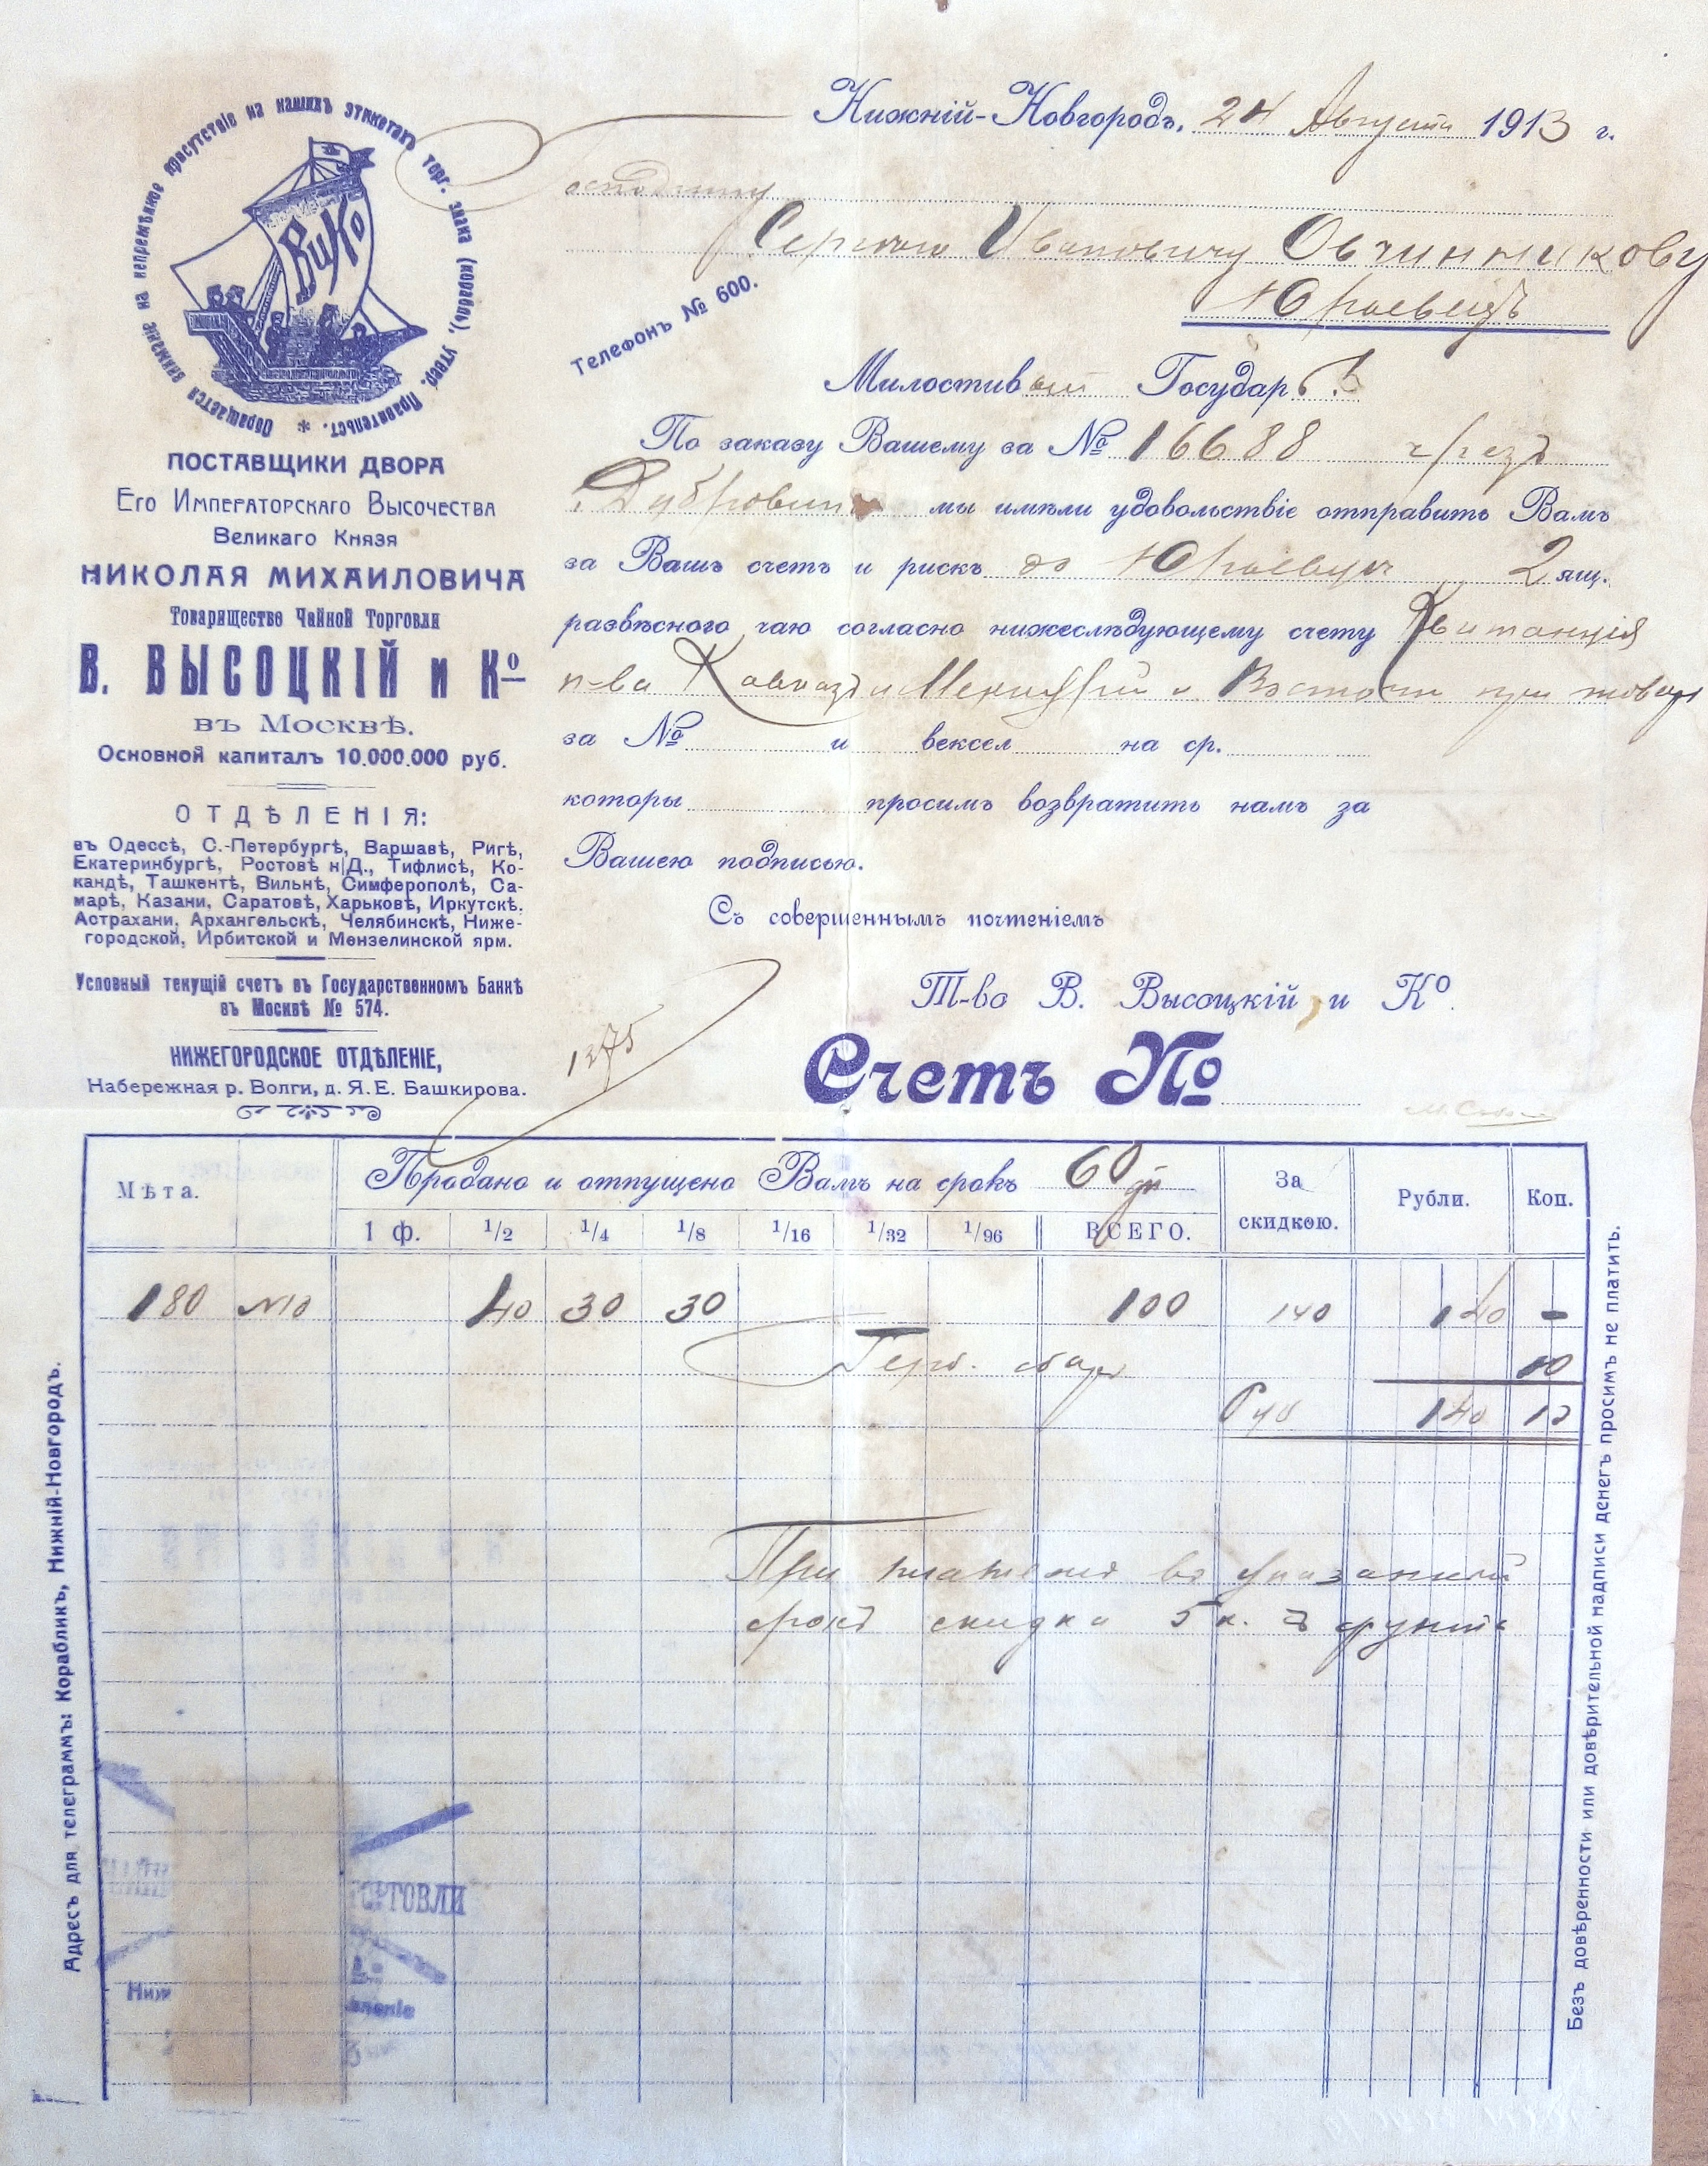 Обращается вниманіе на непремѣнное присутствіе на нашихъ этикетахъ торг. знака (корабль), утвер. Правительст. *
ВиКо
Нижній-Новгородъ, 24 Августа 1913 г.
Господину
Сергѣю Ивановичу Овчинникову
Юрьевецъ
Телефонъ № 600.
Милостивый Государь!
По заказу Вашему за № 16688 чрезъ
г. Дубровина мы имѣли удовольствіе отправить Вамъ
за Вашъ счетъ и рискъ до Юрьевца 2 ящ.
развѣснаго чаю согласно нижеслѣдующему счету Квитанція
п-ва Кавказъ и Меркурій и Востокъ при товарѣ
за № и вексел на ср.
которы просимъ возвратить намъ за
Вашею подписью.
Съ совершеннымъ почтеніемъ
Т-во В. Высоцкій и Ко.
Счетъ №
ПОСТАВЩИКИ ДВОРА
Его Императорскаго Высочества
Великаго Князя
НИКОЛАЯ МИХАИЛОВИЧА
Товарищество Чайной Торговли
В. ВЫСОЦКІЙ и Ко
въ Москвѣ.
Основной капиталъ 10.000.000 руб.
ОТДѢЛЕНІЯ:
въ Одессѣ, С.-Петербургѣ, Варшавѣ, Ригѣ,
Екатеринбургѣ, Ростовѣ н/Д., Тифлисѣ, Ко-
кандѣ, Ташкентѣ, Вильнѣ, Симферополѣ, Са-
марѣ, Казани, Саратовѣ, Харьковѣ, Иркутскѣ,
Астрахани, Архангельскѣ, Челябинскѣ, Ниже-
городской, Ирбитской и Мензелинской ярм.
Условный текущій счетъ въ Государственномъ Банкѣ
въ Москвѣ № 574.
НИЖЕГОРОДСКОЕ ОТДѢЛЕНІЕ,
Набережная р. Волги, д. Я. Е. Башкирова.
1275
Мѣта. Продано и отпущено Вамъ на срокъ 60 дн За скидкою. Рубли. Коп.
1 ф. 1/2 1/4 1/8 1/16 1/32 1/96 ВСЕГО.
180 №10 40 30 30 100 140 140 -
Герб. сборъ 10
Руб 140 10
При платежѣ въ указанный
срокъ скидка 5 к. съ фунта
Адресъ для телеграммъ: Корабликъ, Нижній-Новгородъ.
Безъ довѣренности или довѣрительной надписи денегъ просимъ не платить.
ТОРГОВЛИ
Ниж